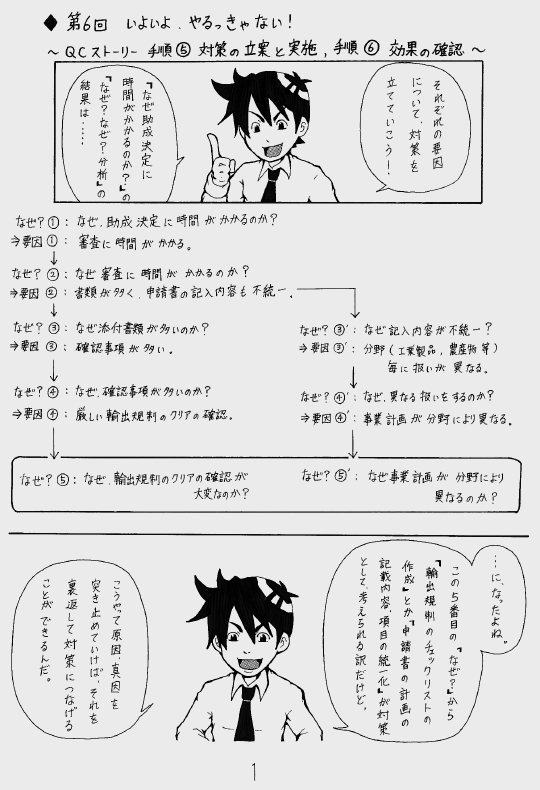 ◆第6回 いよいよ、やるっきゃない！
～QCストーリー 手順⑤ 対策の立案と実施，手順⑥ 効果の確認～
それぞれの要因
について、対策を
立てていこう！
『なぜ助成決定に
時間がかかるのか？』の
『なぜ？なぜ？分析』の
結果は……
なぜ？①：なぜ、助成決定に時間がかかるのか？
⇒要因①：審査に時間がかかる。
なぜ？②：なぜ審査に時間がかかるのか？
⇒要因②：書類が多く、申請書の記入内容も不統一．
なぜ？③：なぜ添付書類が多いのか？
⇒要因③：確認事項が多い。
なぜ？④：なぜ、確認事項が多いのか？
⇒要因④：厳しい輸出規制のクリアの確認。
なぜ？⑤：なぜ、輸出規制のクリアの確認が
大変なのか？
なぜ？③′：なぜ記入内容が不統一？
⇒要因③′：分野（工業製品，農産物等）
毎に扱いが異なる。
なぜ？④′：なぜ、異なる扱いをするのか？
⇒要因④′：事業計画が分野により異なる。
なぜ？⑤′：なぜ事業計画が分野により
異なるのか？
…に、なったよね。
この5番目の『なぜ？』から
『輸出規制のチェックリストの
作成』とか『申請書の計画の
記載内容、項目の統一化』が対策
として、考えられる訳だけど、
こうやって原因、真因を
突き止めていけば、それを
裏返して対策につなげる
ことができるんだ。
1